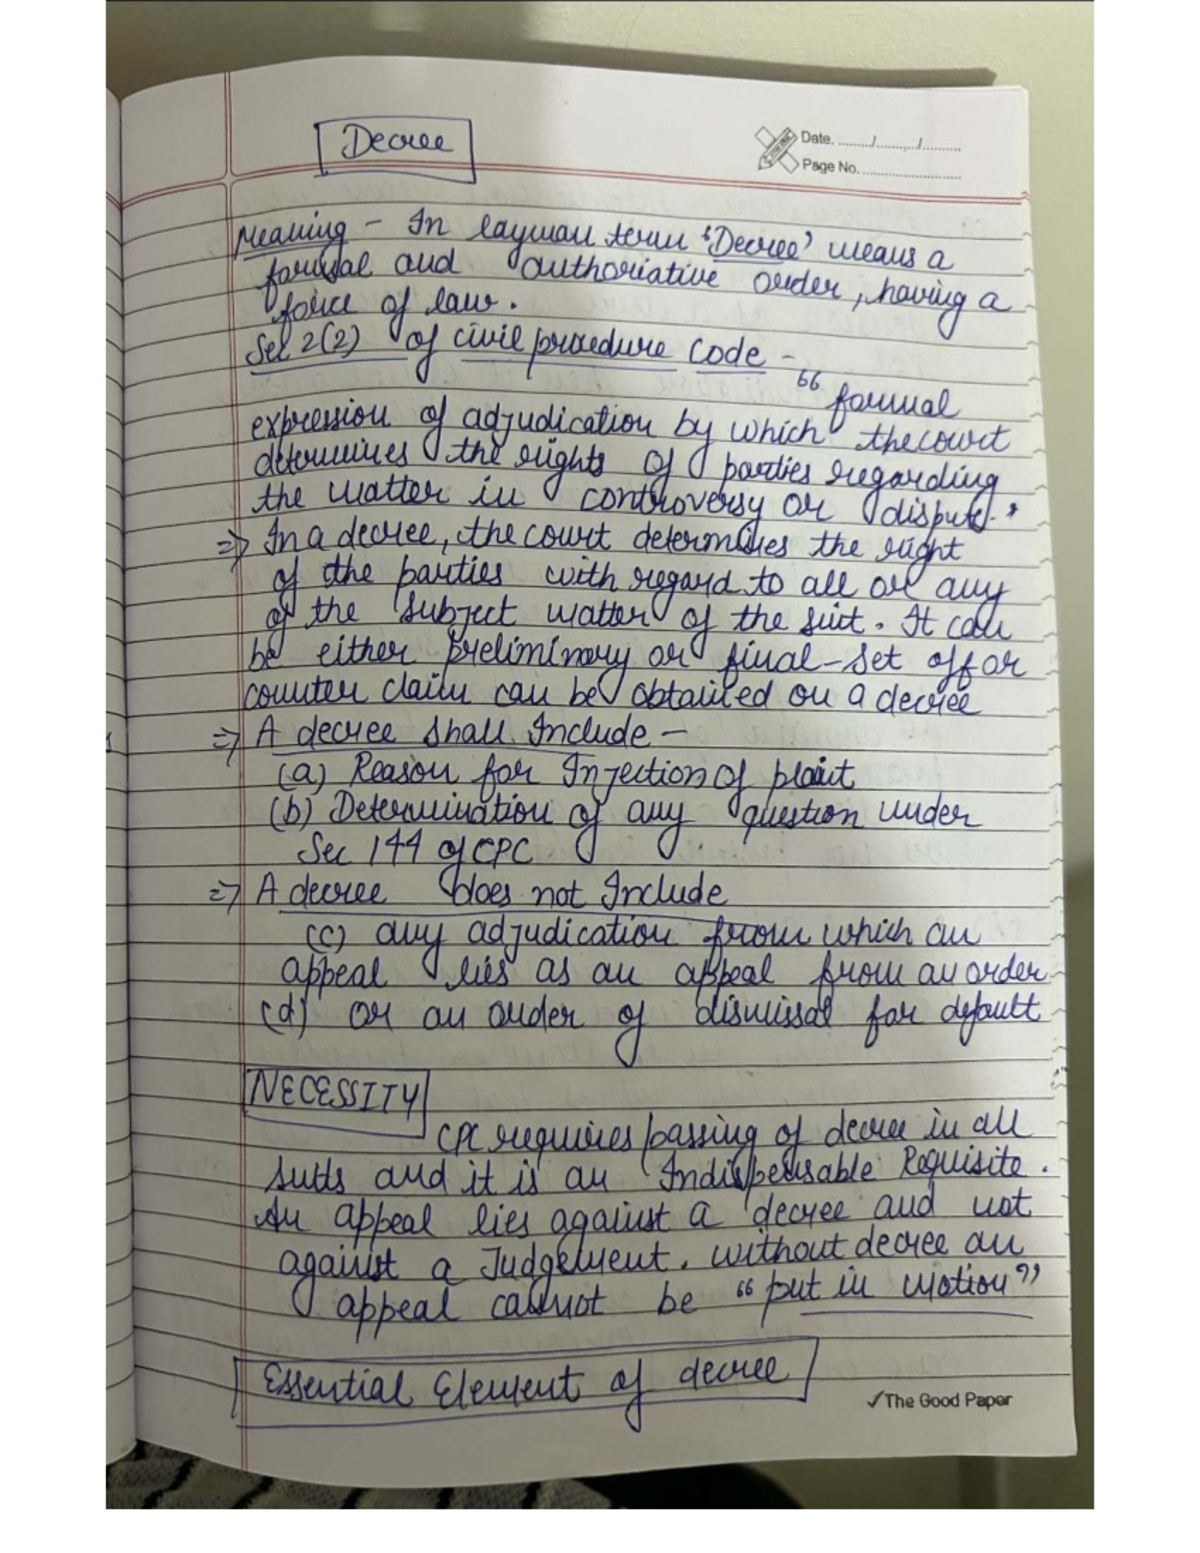 Decree
Date. ......../......../............
Page No. ........................
Meaning - In layman term 'Decree' means a
formal and authoriative order, having a
force of law.
Sec 2(2) of civil procedure code -
" formal
expression of adjudication by which the court
determines the rights of parties regarding
the matter in controversy or dispute."
=> In a decree, the court determines the right
of the parties with regard to all or any
of the subject matter of the suit. It can
be either preliminary or final-set off or
counter claim can be obtained on a decree
=> A decree shall Include -
(a) Reason for Injection of plaint
(b) Determination of any question under
Sec 144 of CPC
=> A decree does not Include
(c) any adjudication from which an
appeal lies as an appeal from an order
(d) or an order of dismissal for default
NECESSITY
CPC requires passing of decree in all
suits and it is an Indispensable Requisite.
An appeal lies against a decree and not
against a Judgement. without decree an
appeal cannot be "put in motion"
Essential Element of decree
✓The Good Paper